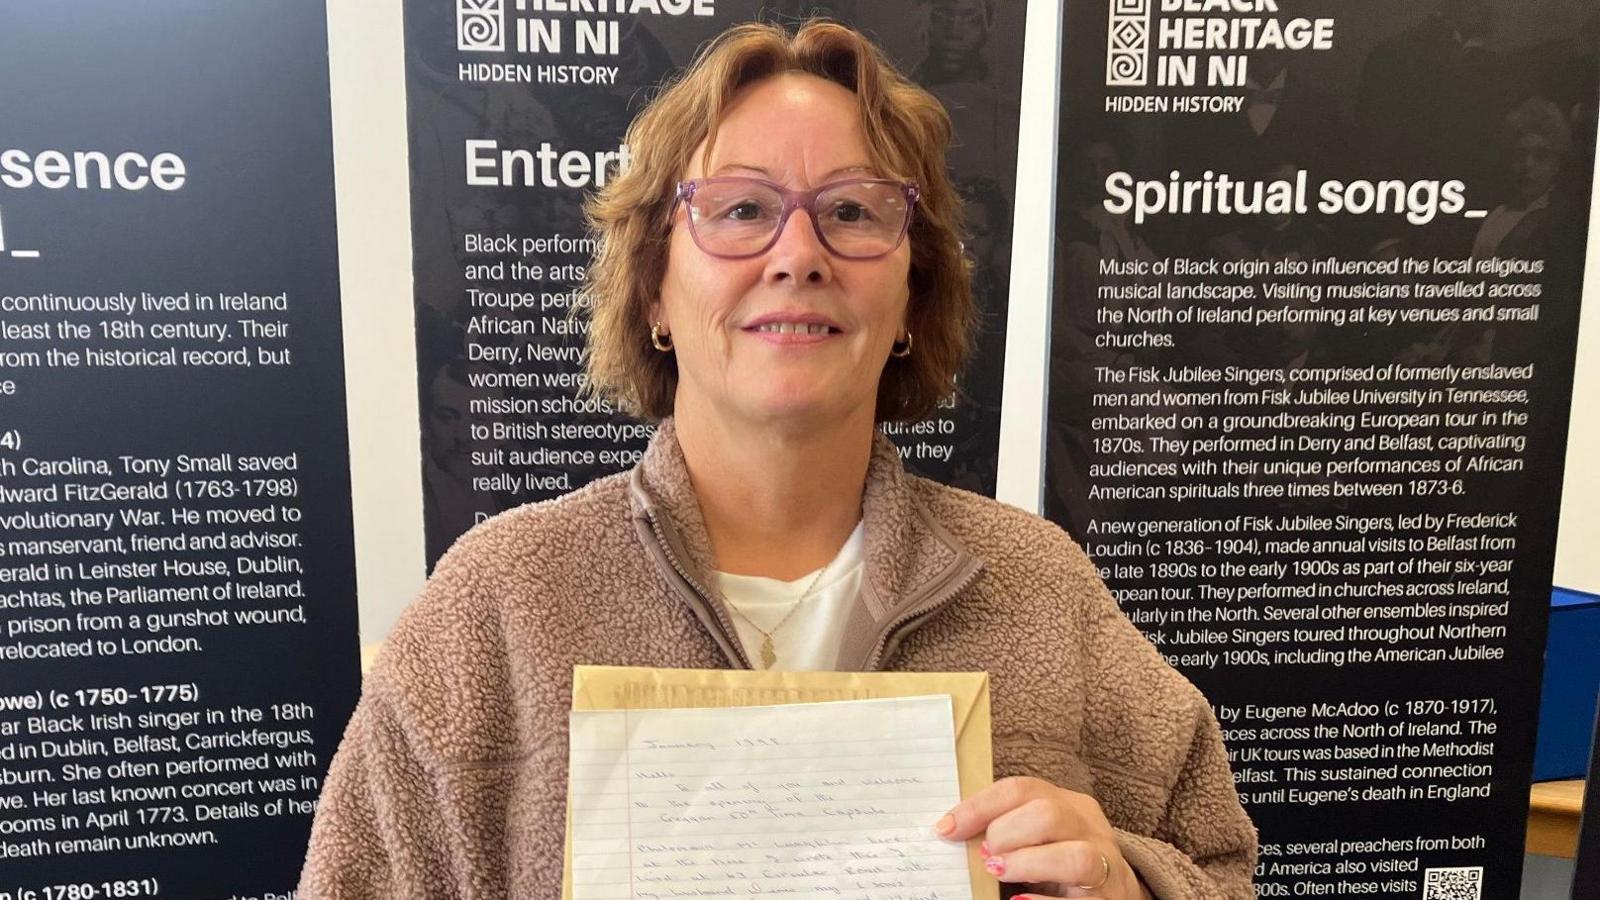 sence
_
continuously lived in Ireland
least the 18th century. Their
rom the historical record, but
ce
4)
h Carolina, Tony Small saved
dward FitzGerald (1763-1798)
volutionary War. He moved to
s manservant, friend and advisor.
erald in Leinster House, Dublin,
achtas, the Parliament of Ireland.
prison from a gunshot wound,
relocated to London.
owe) (c 1750-1775)
ar Black Irish singer in the 18th
d in Dublin, Belfast, Carrickfergus,
sburn. She often performed with
we. Her last known concert was in
ooms in April 1773. Details of her
death remain unknown.
n (c 1780-1831)
HERITAGE
IN NI
HIDDEN HISTORY
Entert
Black performe
and the arts.
Troupe perfor
African Nativ
Derry, Newry
women were
mission schools,
to British stereotypes
suit audience expe
really lived.
ed
tumes to
w they
BLACK
HERITAGE
IN NI
HIDDEN HISTORY
Spiritual songs_
Music of Black origin also influenced the local religious
musical landscape. Visiting musicians travelled across
the North of Ireland performing at key venues and small
churches.
The Fisk Jubilee Singers, comprised of formerly enslaved
men and women from Fisk Jubilee University in Tennessee,
embarked on a groundbreaking European tour in the
1870s. They performed in Derry and Belfast, captivating
audiences with their unique performances of African
American spirituals three times between 1873-6.
A new generation of Fisk Jubilee Singers, led by Frederick
Loudin (c 1836-1904), made annual visits to Belfast from
he late 1890s to the early 1900s as part of their six-year
opean tour. They performed in churches across Ireland,
ularly in the North. Several other ensembles inspired
isk Jubilee Singers toured throughout Northern
he early 1900s, including the American Jubilee
by Eugene McAdoo (c 1870-1917),
aces across the North of Ireland. The
ir UK tours was based in the Methodist
elfast. This sustained connection
s until Eugene's death in England
ces, several preachers from both
d America also visited
800s. Often these visits
January 1998
Hello
To all of you and welcome
to the opening of the
Creggan 50th Time Capsule
at the time I wrote this I
lived at 43 Circular Road with
my husband